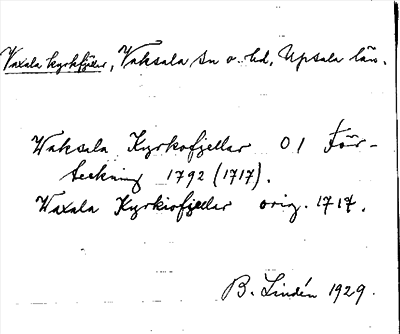 Vaxala kyrkfjäler, Vaksala sn o. hd, Upsala län.
Waksala Kyrkofjellar O 1 För-
teckning 1792 (1717).
Waxala Kyrkiofjellar orig. 1717.
B. Lindén 1929.